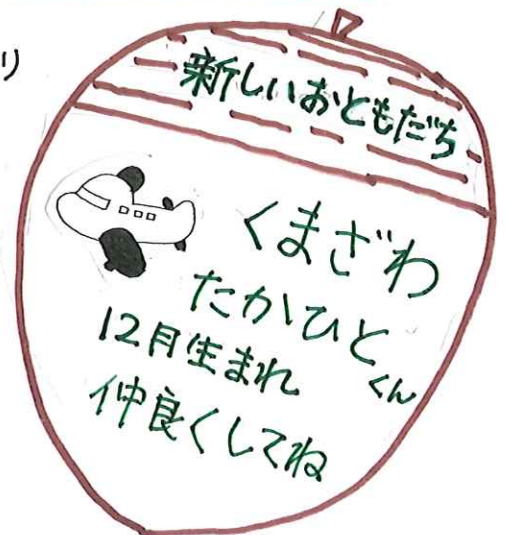 り
新しいおともだち
くまざわ
たかひとくん
12月生まれ
仲良くしてね